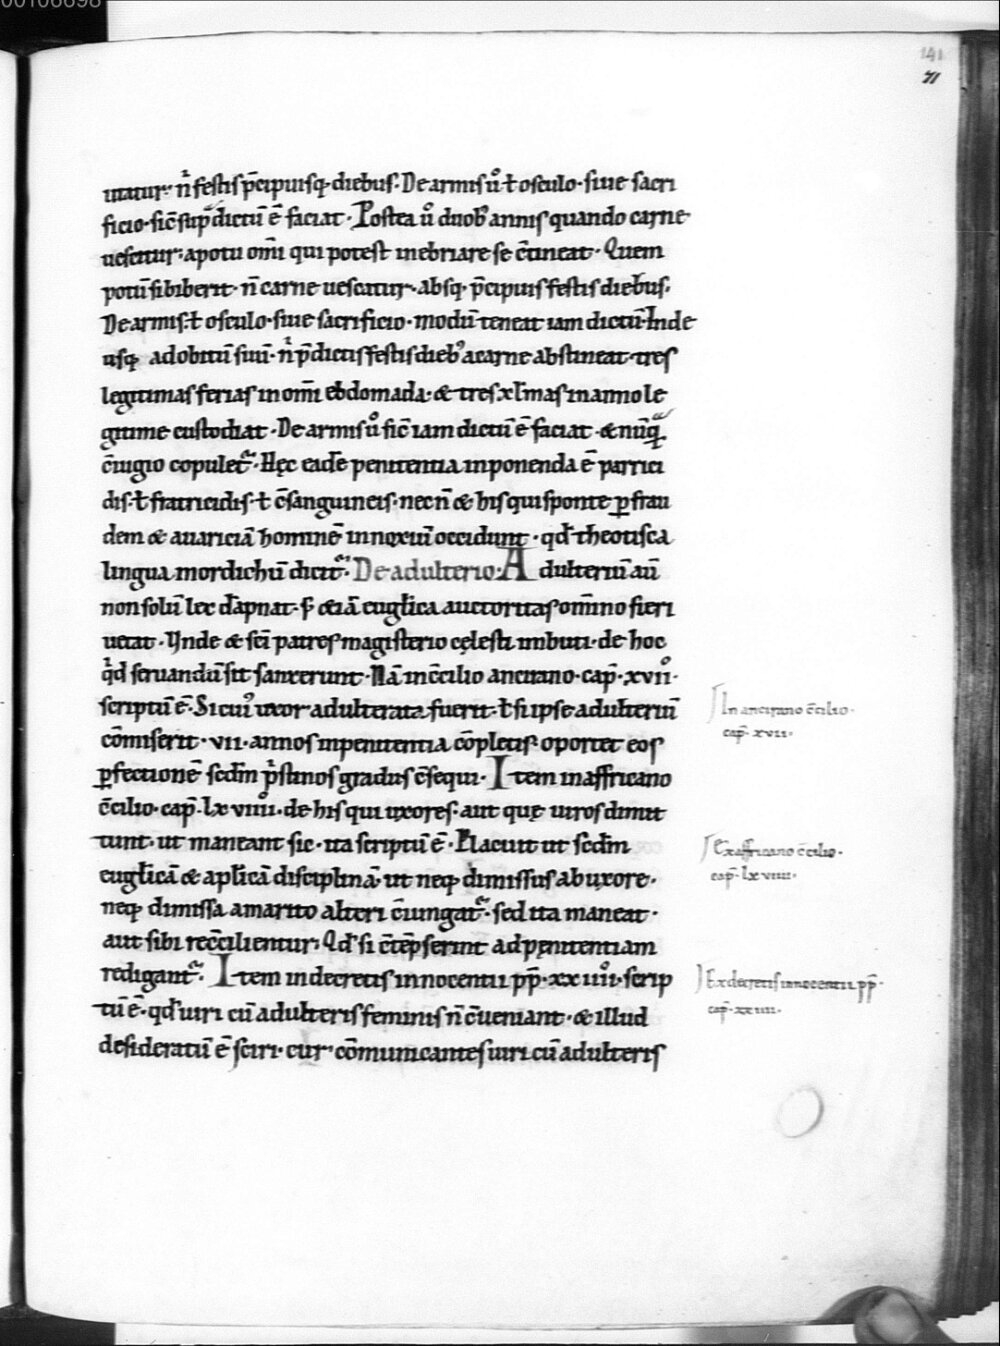 00106698
141
71
utatur· n̄ festis p̄cipuisq; diebus· De armis ů ł osculo· siue sacri
ficio· sic̄ sup̄ dictū ē faciat· Postea ů duob; annis quando carne
uescitur· a potu om̄i qui potest inebriare se c̄tineat· Quem
potū si biberit· n̄ carne uescatur· absq; p̄cipuis festis diebus·
De armis· ł osculo· siue sacrificio· modū teneat iam dictū· Inde
usq; ad obitū suū· n̄ p̄dictis festis dieb; a carne abstineat· tres
legitimas ferias in om̄i ebdomada· & tres xl̄mas in anno le
gitime custodiat· De armis ů sic̄ iam dictū ē faciat· & nūq̄
c̄iugio copulet᷑· Hęc eadē penitentia inponenda ē parrici
dis· ł fratricidis· ł c̄sanguineis· necn̄ & his qui sponte p̱ frau
dem & auariciā hominē innoxiū occidunt· qd̄ theotisca
lingua mordichū dicit᷑· De adulterio· Adulteriū aū
non solū lex dāpnat· s̄ etiā euglica auctoritas om̄ino fieri
uetat· Vnde & sc̄i patres magisterio cęlesti imbuti· de hoc
qͥd seruandū sit sanxerunt· Nā in c̄cilio ancirano· cap̄· xvii·
scriptū ē· Si cui᷒ uxor adulterata fuerit· ł si ipse adulteriū
cōmiserit· vii· annos in penitentia cōpletis oportet eos
p̱fectionē sc̄dm pͥstinos gradus c̄sequi· Item in affricano
c̄cilio· cap̄· lxviiii· de his qui uxores· aut quę uiros dimit
tunt· ut maneant sic· ita scriptū ē· Placuit ut sc̄dm
euglicā & aplicā disciplinā· ut neq; dimissus ab uxore·
neq; dimissa a marito alteri c̄iungat᷑· sed ita maneat·
aut sibi rec̄cilientur· Qd̄ si c̄tēpserint ad pęnitentiam
redigant᷑· Item in decretis innocentii pp̄· xxiiii· scrip
tū ē· qd̄ uiri cū adulteris feminis n̄ c̄ueniant· & illud
desideratū ē sciri· cur cōmunicantes uiri cū adulteris
In ancirano c̄cilio·
cap̄· xvii·
Ex affricano c̄cilio·
cap̄· lxviiii·
Ex decretis innocentii pp̄·
cap̄· xxiiii·